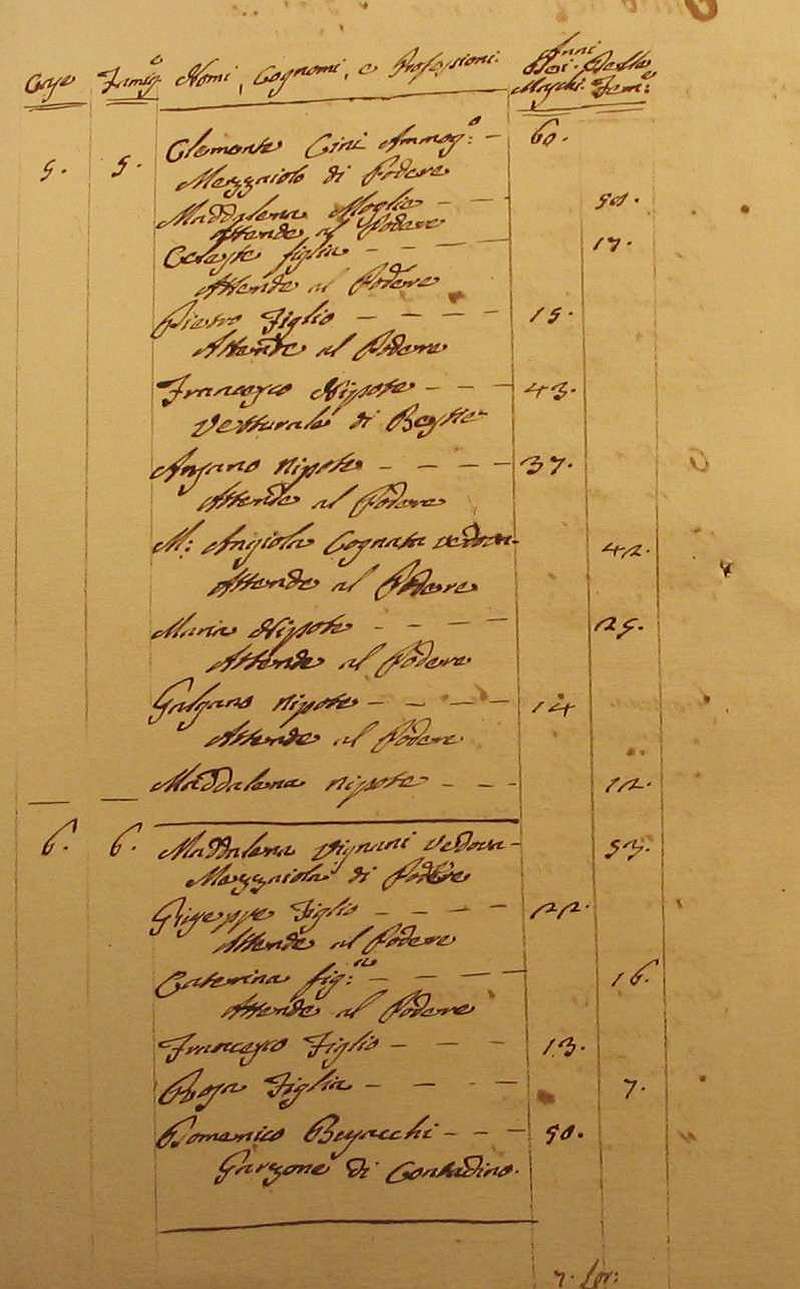 Case Famig.e Nomi, Cognomi, e Professioni. Anni
Dei Delle
Maschi. Fem.e
5. 5. Clemente Cini Ammog.o — 60.
Mezzaiolo di Podere
Maddalena Moglie — — 50.
Attende al Podere
Celeste figlia — — — 17.
Attende al Podere
Pietro Figlio — — — — 15.
Attende al Podere
Francesco Nipote — — — 43.
Vetturale di Bestie
Ansano Nipote — — — — 37.
Attende al Podere
M: Angiola Cognata vedova. 42.
Attende al Podere
Maria Nipote — — — — 25.
Attende al Podere
Galgano Nipote — — — — 14
Attende al Podere
Maddalena Nipote — — — 12.
6. 6. Maddalena Vignani Vedova — 53.
Mezzaiola di Podere
Giuseppe Figlio — — — — 22.
Attende al Podere
Caterina fig:a — — — — 16.
Attende al Podere
Francesco Figlio — — — 13.
Rosa Figlia — — — — 7.
Domenico Bugacchi — — — 50.
Garzone di Contadino.
7.